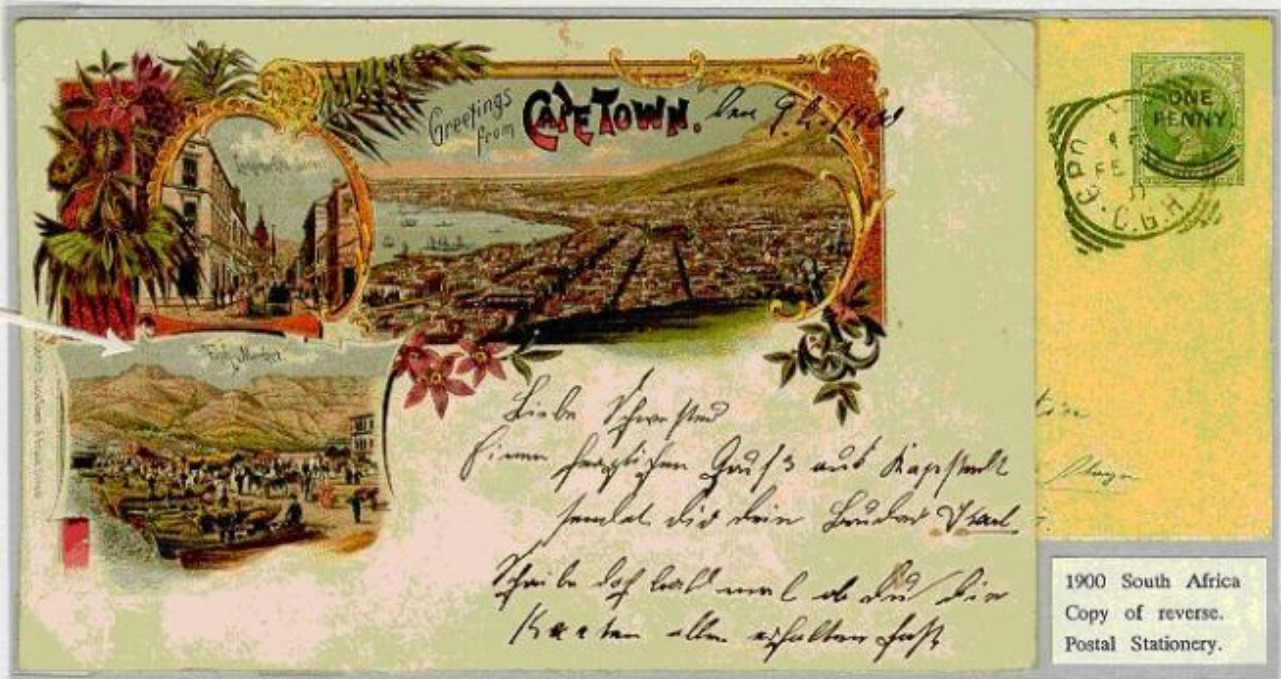 Greetings
from CAPETOWN. den 9.2.1900
Fish Market
ONE
PENNY
G.P.O.
FE
C.G.H
Liebe Schwester
Einen herzlichen Gruß aus Kapstadt
sendet dir dein Bruder
Schreibe doch bald mal ob du die
Karten alle erhalten hast
1900 South Africa
Copy of reverse.
Postal Stationery.